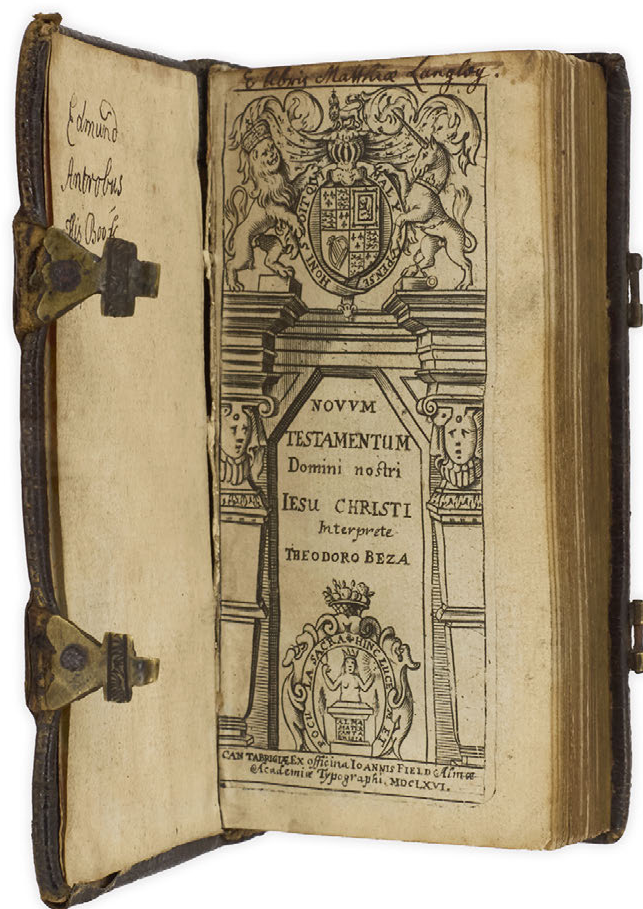 Edmund
Antrobus
His Booke
Ex libris Matthiæ Langley.
HONI SOIT QUI MAL Y PENSE
NOVVM
TESTAMENTUM
Domini nostri
IESU CHRISTI
Interprete
THEODORO BEZA
HINC LUCEM ET POCULA SACRA
ALMA
MATER
CANTA
BRIGIA
CANTABRIGIÆ, Ex officina IOANNIS FIELD Almæ
Academiæ Typographi. MDCLXVI.